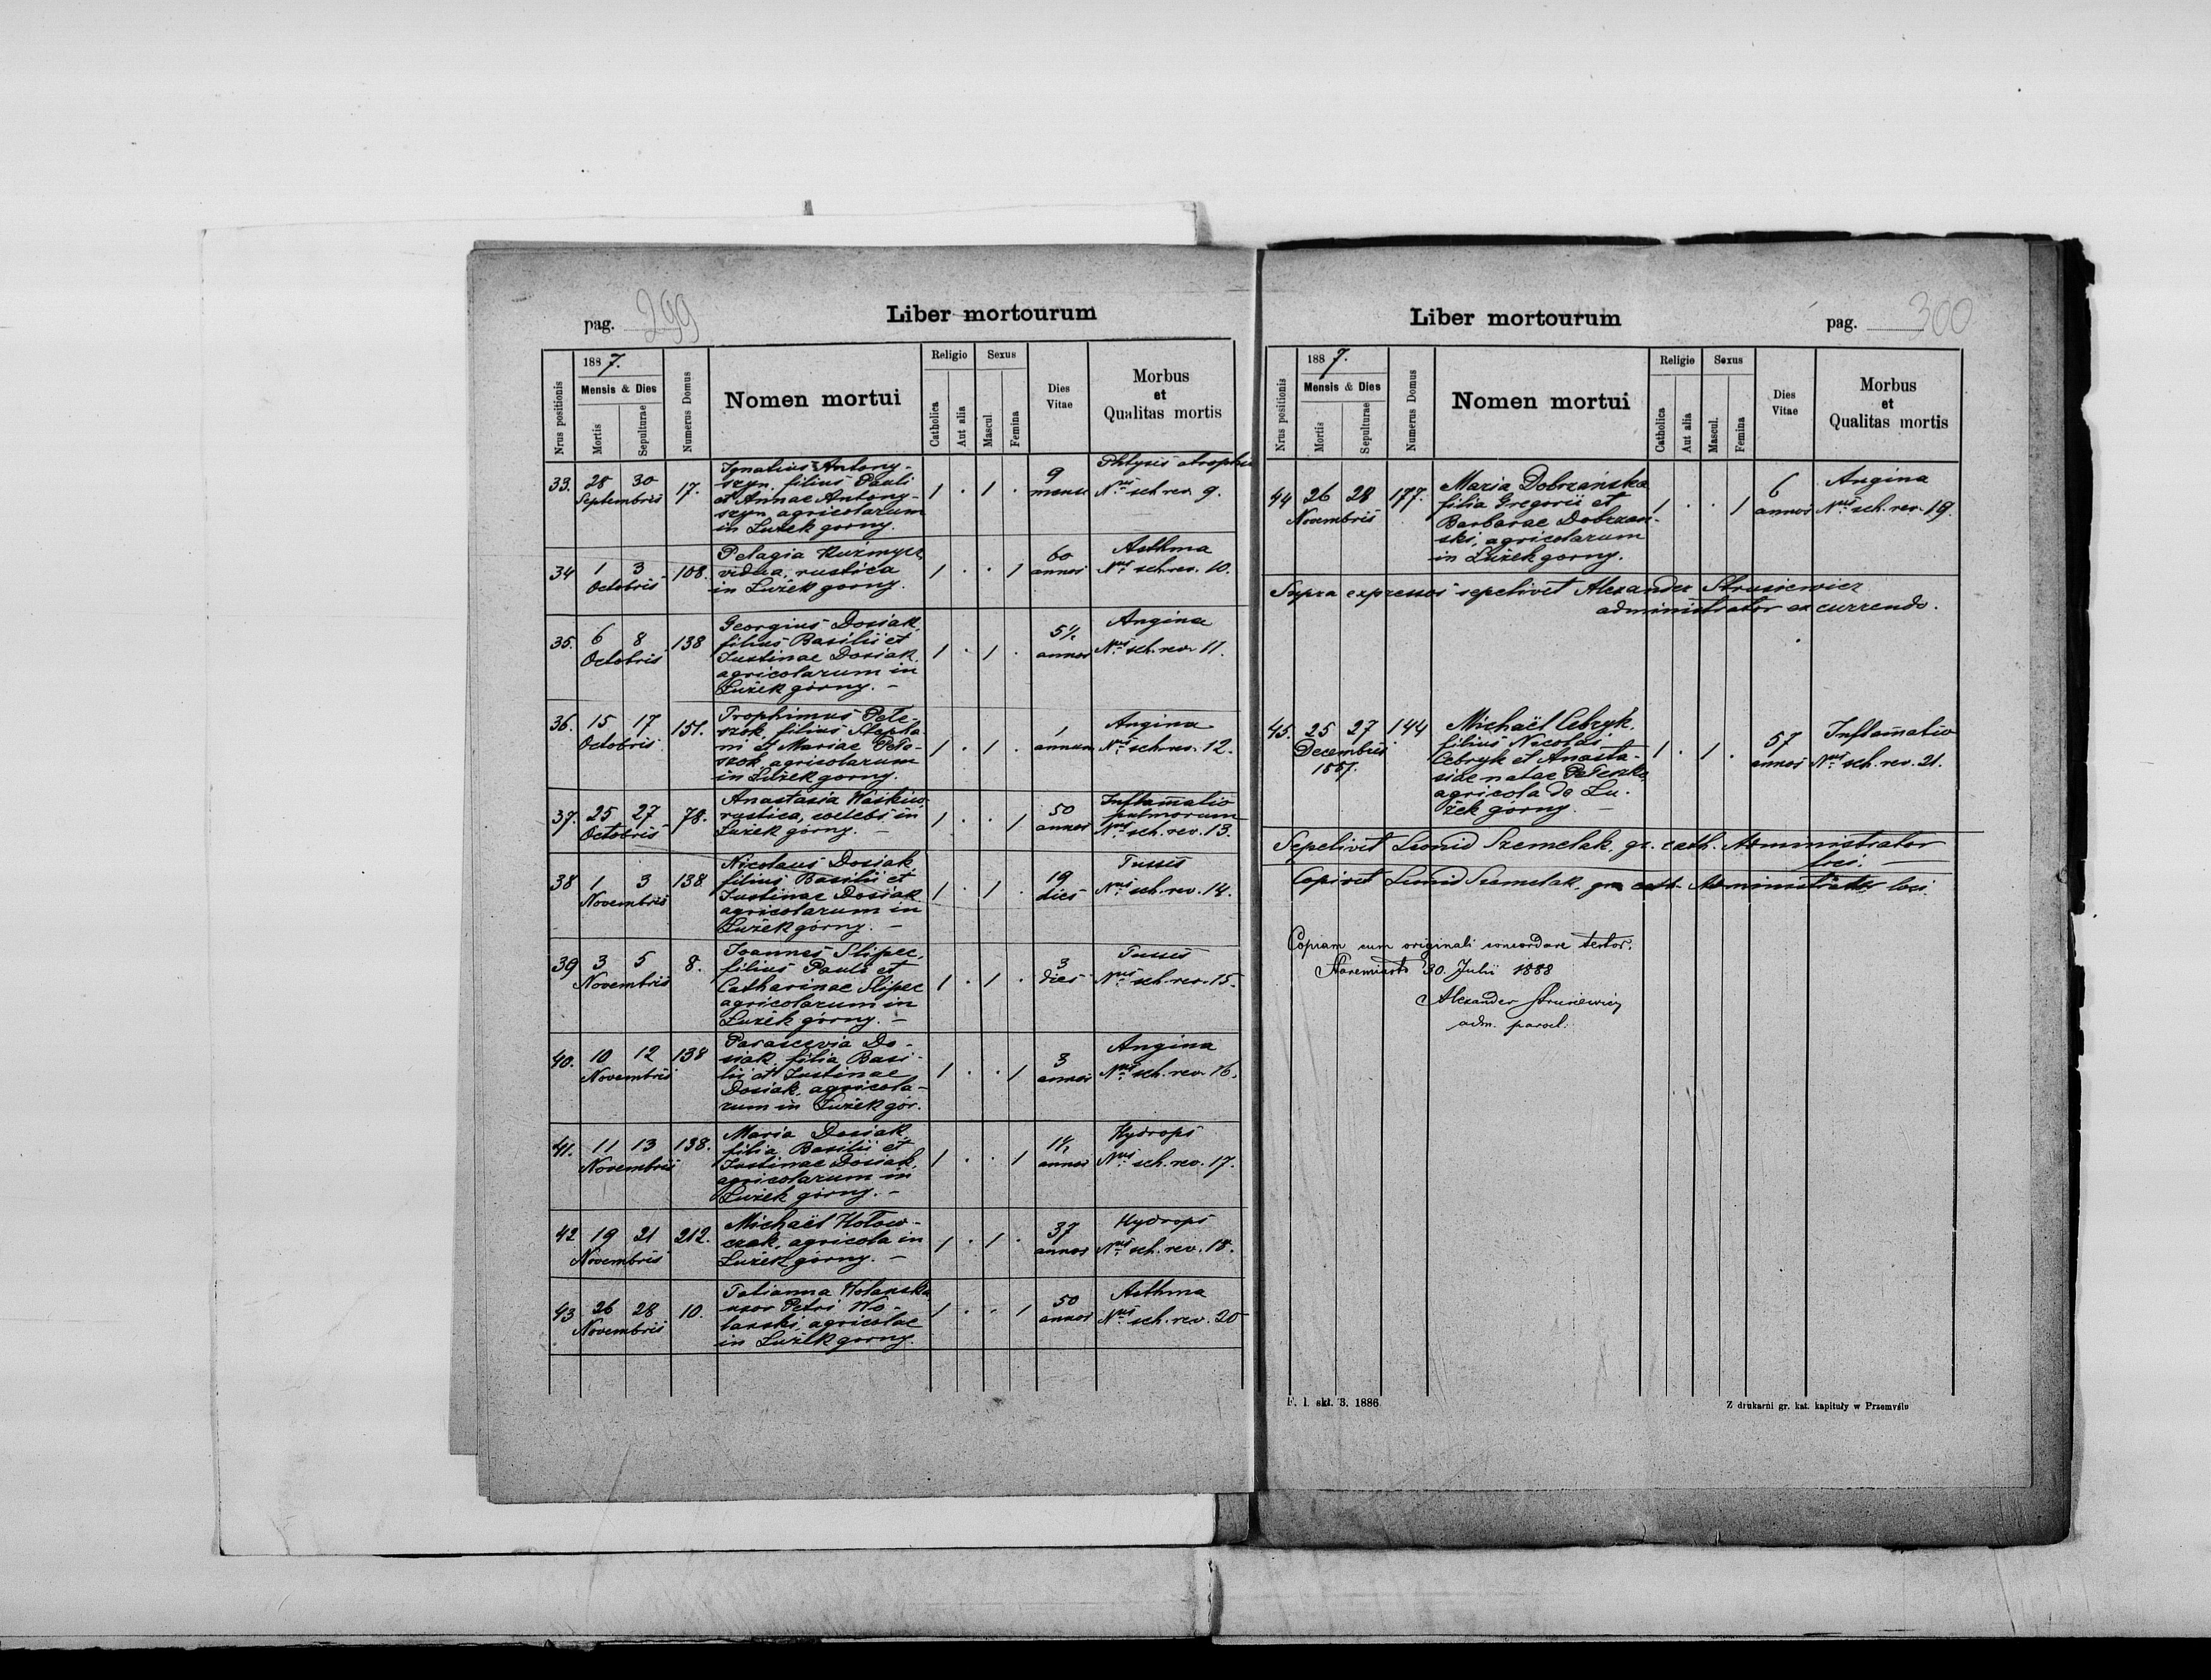 pag. 299
Liber mortourum
Nrus positionis
1887.
Mensis & Dies
Mortis
Sepulturae
Numerus Domus
Nomen mortui
Religio
Catholica
Aut alia
Sexus
Mascul.
Femina
Dies
Vitae
Morbus
et
Qualitas mortis
33. 28 30 Septembris 17.
Ignatius Antony-
szyn, filius Pauli
et Annae Antony-
szyn agricolarum
in Łużek gorny.
1 . 1 . 9 mens.
Phtysis
Nrus sch. rev. 9.
34 1 3 Octobris 108.
Pelagia Kuźmycz,
vidua, rustica
in Łużek gorny.
1 . . 1 60 annos
Asthma
Nrus sch. rev. 10.
35. 6 8 Octobris 138
Georgius Dosiak,
filius Basilii et
Justinae Dosiak,
agricolarum in
Łużek górny. –
1 . 1 . 5½ annos
Angina
Nrus sch. rev. 11.
36. 15 17 Octobris 151.
Trophimus Pete-
szok, filius Stepha-
ni et Mariae Pete-
szok agricolarum
in Łużek gorny.
1 . 1 . 1 annum
Angina
Nrus sch. rev. 12.
37. 25 27 Octobris 78.
Anastasia
rustica, coelebs in
Łużek górny. –
1 . . 1 50 annos
Inflam̄atio
pulmorum
Nrus sch. rev. 13.
38 1 3 Novembris 138
Nicolaus Dosiak
filius Basilii et
Justinae Dosiak
agricolarum in
Łużek górny. –
1 . 1 . 19 dies
Tussis
Nrus sch. rev. 14.
39 3 5 Novembris 8.
Joannes Slipec,
filius Pauli et
Catharinae Slipec
agricolarum in
Łużek górny. –
1 . 1 . 3 dies
Tussis
Nrus sch. rev. 15.
40. 10 12 Novembris 138
Parascevia Do-
siak, filia Basi-
lii et Justinae
Dosiak, agricola-
rum in Łużek gór.
1 . . 1 3 annos
Angina
Nrus sch. rev. 16.
41. 11 13 Novembris 138.
Maria Dosiak,
filia Basilii et
Justinae Dosiak,
agricolarum in
Łużek górny. –
1 . . 1 annos
Hydrops
Nrus sch. rev. 17.
42 19 21 Novembris 212.
Michaël Hołow-
czak, agricola in
Łużek górny. –
1 . 1 . 37 annos
Hydrops
Nrus sch. rev. 18.
43 26 28 Novembris 10.
Tatianna Wolanska
uxor Petri Wo-
lanski, agricolae
in Łużek gorny.
1 . . 1 50 annos
Asthma
Nrus sch. rev. 20
Liber mortourum
pag. 300
Nrus positionis
1887.
Mensis & Dies
Mortis
Sepulturae
Numerus Domus
Nomen mortui
Religio
Catholica
Aut alia
Sexus
Mascul.
Femina
Dies
Vitae
Morbus
et
Qualitas mortis
44 26 28 Novembris 177.
Maria Dobrzańska
filia Gregorii et
Barbarae Dobrzań-
ski, agricolarum
in Łużek gorny.
1 . . 1 6 annos
Angina
Nrus sch. rev. 19.
Supra expressos sepelivit Alexander Strusiewicz
administrator ex currendo.
45. 25 27 Decembris 1887. 144
Michaël Cebryk,
filius Nicolai
Cebryk et Anasta-
siae natae
agricola de Łu-
żek górny. –
1 . 1 . 57 annos
Inflam̄atio
Nrus sch. rev. 21.
Sepelivit Leonid Szemelak, gr. cath. Administrator
loci. –
Copivit Leonid Szemelak, gr. cath. Administrator loci.
Copiam cum originali concordare testor.
Staremiasto 30. Julii 1888
Alexander Strusiewicz
adm. paroch.
F. 1. skł. 3. 1886
Z drukarni gr. kat. kapituły w Przemyślu